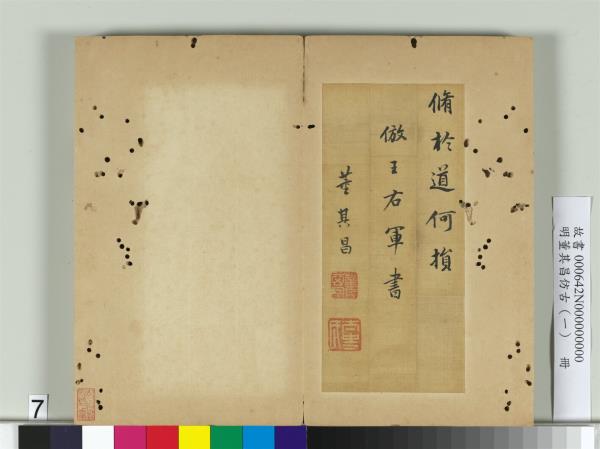 脩於道何損
倣王右軍書
董其昌
故書 000642N000000000
明董其昌仿古(一) 冊
7